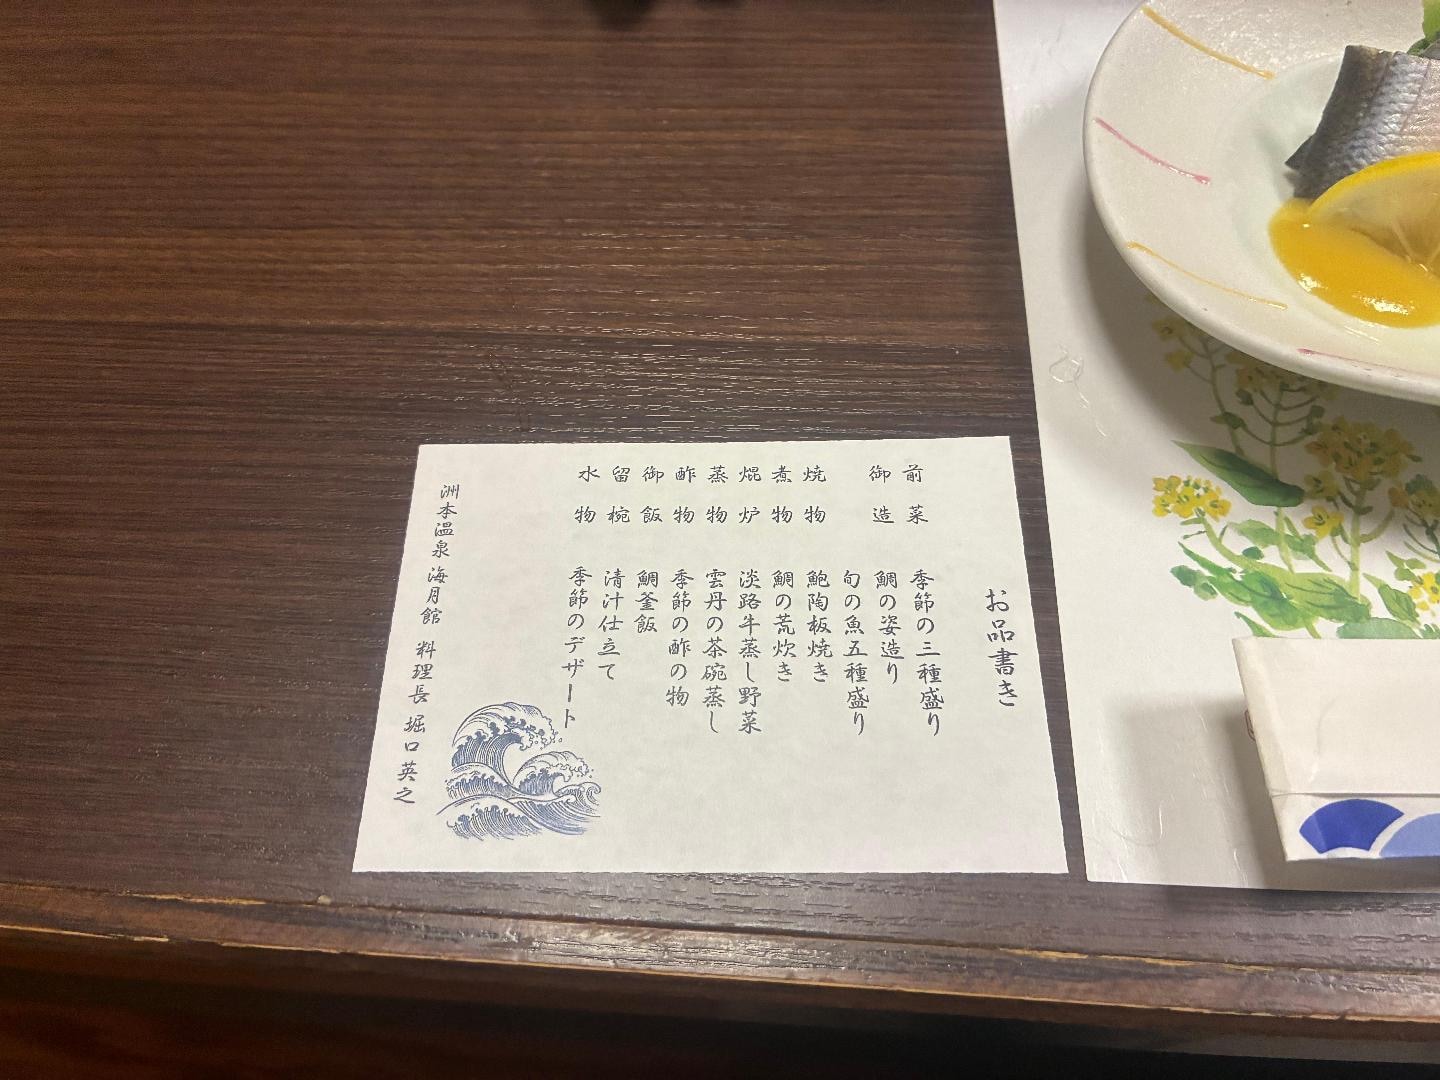 お品書き
前菜 季節の三種盛り
御造 鯛の姿造り
旬の魚五種盛り
焼物 鮑陶板焼き
煮物 鯛の荒炊き
焜炉 淡路牛蒸し野菜
蒸物 雲丹の茶碗蒸し
酢物 季節の酢の物
御飯 鯛釜飯
留椀 清汁仕立て
水物 季節のデザート
洲本温泉 海月館 料理長 堀口英之